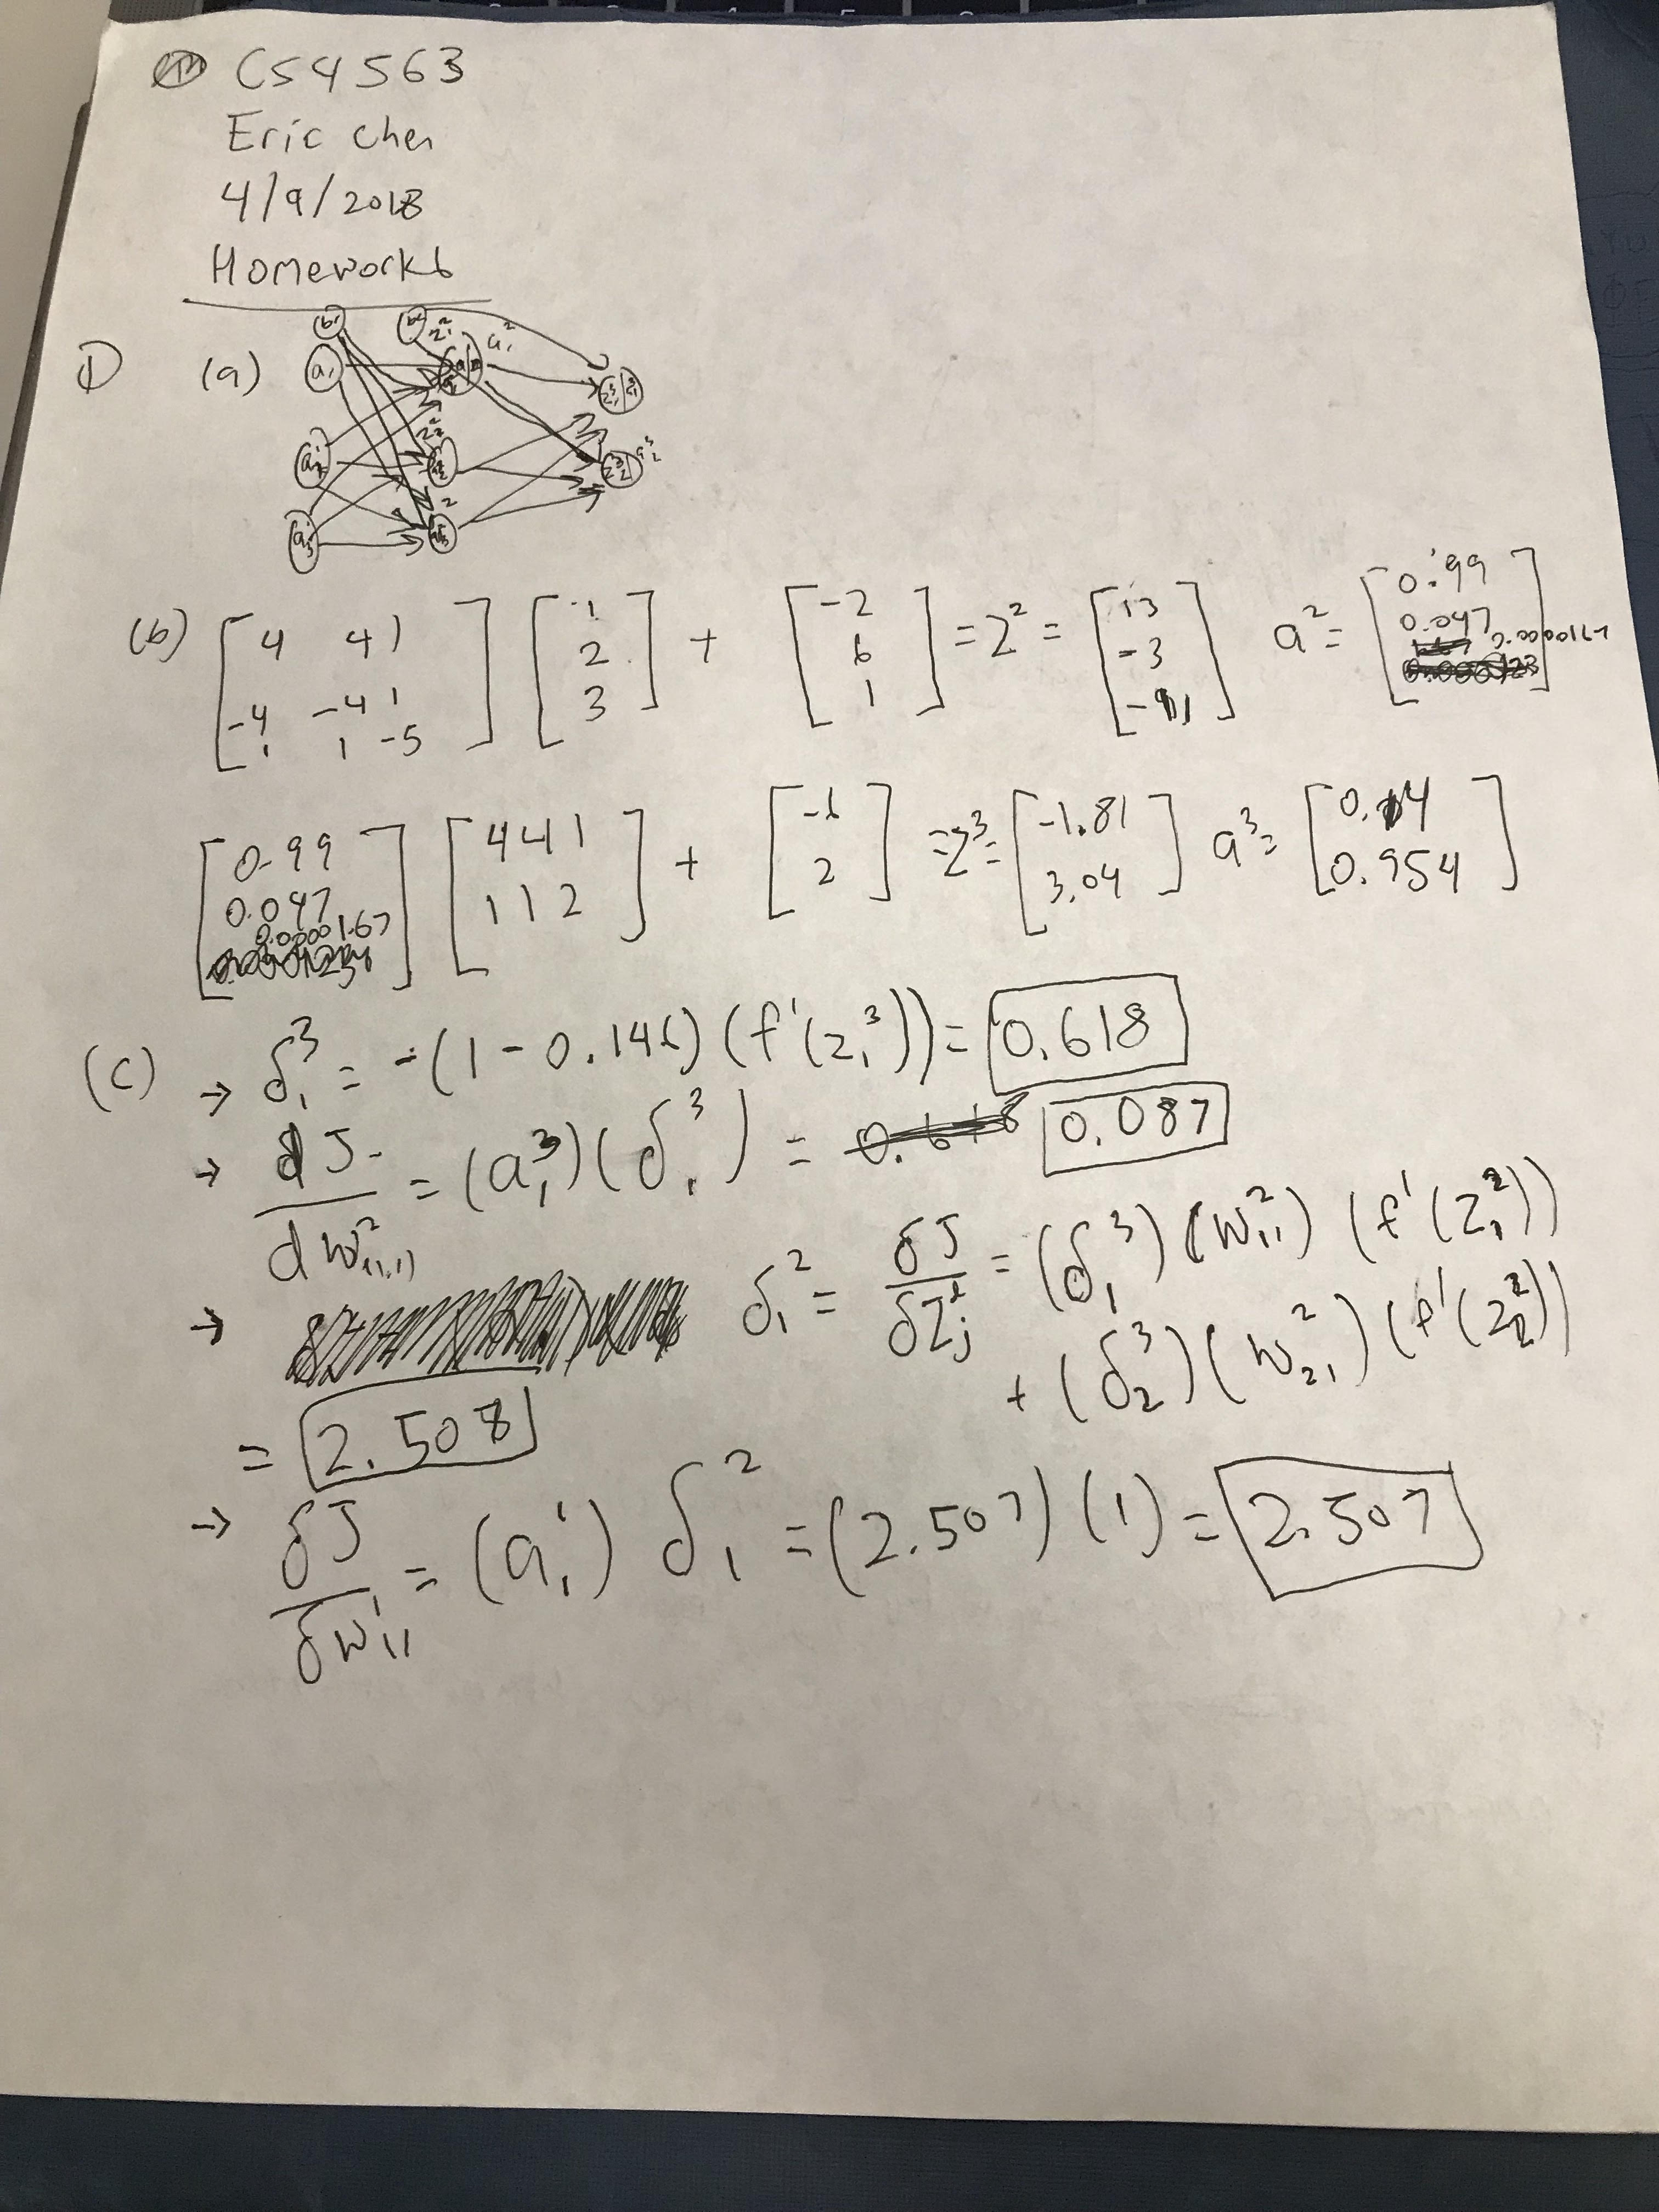 CS4563
Eric Chen
4/9/2018
Homework 6
1 (a)
b¹ b² z₁² a₁²
a₁ z₁³ a₁³
a₂¹ z₂² z₂³ a₂³
a₃¹
(b) [4 4 1; -4 -4 1; 1 1 -5] [1; 2; 3] + [-2; 6; 1] = z² = [13; -3; -11] a² = [0.99; 0.047; 0.0000167]
[0.99; 0.047; 0.0000167] [4 4 1; 1 1 2] + [-6; 2] = z³ = [-1.81; 3.04] a³ = [0.14; 0.954]
(c) → δ₁³ = -(1 - 0.146)(f'(z₁³)) = 0.618
→ dJ/dW²₍₁,₁₎ = (a₁³)(δ₁³) = 0.087
→ δ₁² = δJ/δZⱼ² = (δ₁³)(W₁₁²)(f'(Z₁²))
+ (δ₂³)(W₂₁²)(f'(Z₂²))
= 2.508
→ δJ/δW₁₁¹ = (a₁¹) δ₁² = (2.507)(1) = 2.507